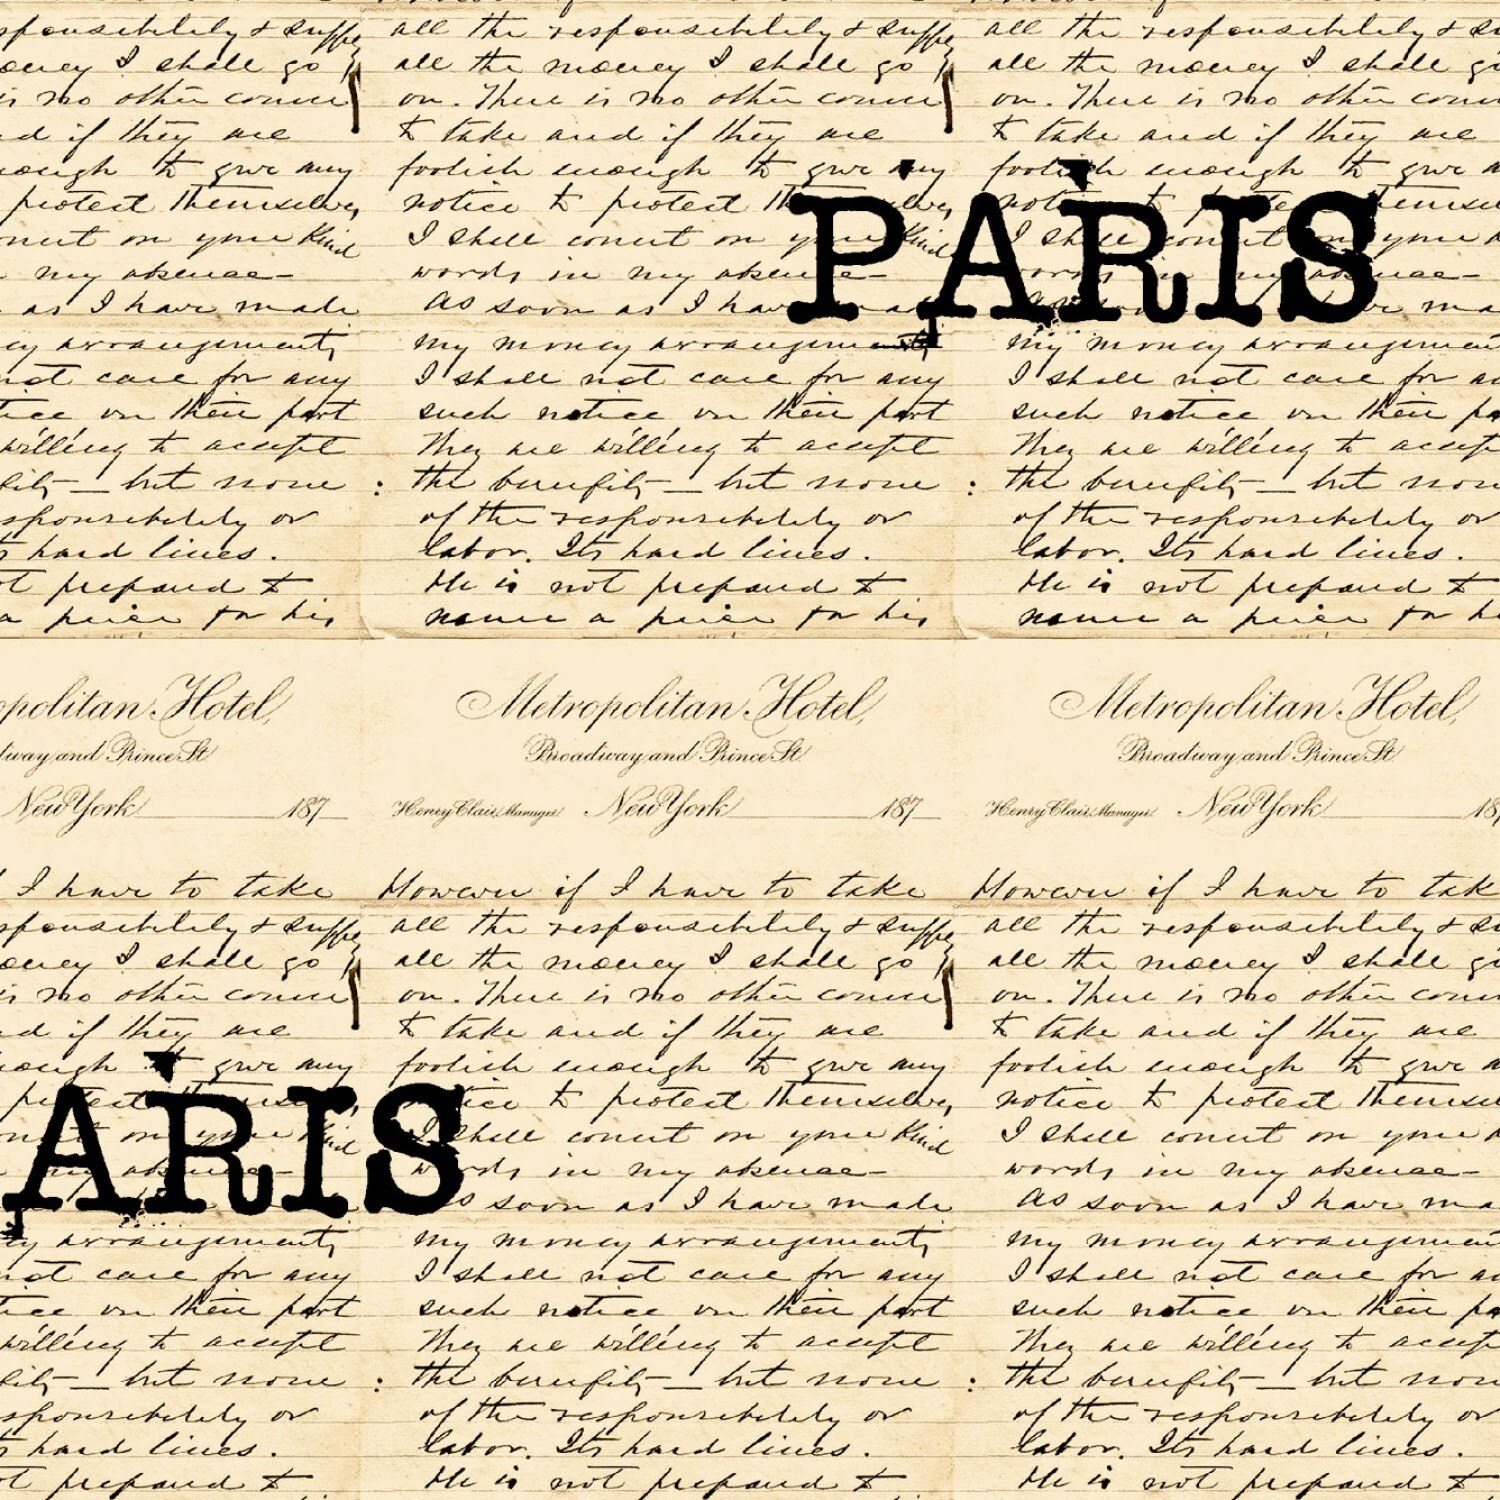 & suffer
money I shall go
is no other course
if they are
to give any
protect themselves
on your kind
my absence –
as I have made
arrangements
not care for any
on their part
willing to accept
– but none
or
hard lines.
prepared to
a price for his
all the responsibility & suffer
all the money I shall go
on. There is no other course
to take and if they are
foolish enough to give any
notice to protect themselves
I shall count on your kind
words in my absence –
As soon as I have made
my money arrangements
I shall not care for any
such notice on their part
They are willing to accept
: the benefits – but none
of the responsibility or
labor. Its hard lines.
He is not prepared to
name a price for his
all the responsibility &
all the money I shall
on. There is no other
to take and if they are
foolish enough to give
notice to
I shall count on your
words in my absence –
my money
I shall not care for
such notice on their
They are willing to
: the benefits – but
of the responsibility or
labor. Its hard lines.
He is not prepared to
name a price for
PARIS
Hotel,
and Prince St
New York 187
I have to take
& suffer
money I shall go
is no other course
if they are
to give any
my absence –
arrangements
not care for any
on their part
willing to accept
– but none
or
hard lines.
prepared to
Metropolitan Hotel,
Broadway and Prince St
Henry Clair, Manager New York 187
However if I have to take
all the responsibility & suffer
all the money I shall go
on. There is no other course
to take and if they are
foolish enough to give any
notice to protect themselves
I shall count on your kind
words in my absence –
soon as I have made
my money arrangements
I shall not care for any
such notice on their part
They are willing to accept
: the benefits – but none
of the responsibility or
labor. Its hard lines.
He is not prepared to
Metropolitan Hotel,
Broadway and Prince St
Henry Clair, Manager New York 18
However if I have to
all the responsibility &
all the money I shall
on. There is no other
to take and if they are
foolish enough to give
notice to protect
I shall count on your
words in my absence –
As soon as I have
my money
I shall not care for
such notice on their
They are willing to
: the benefits – but
of the responsibility or
labor. Its hard lines.
He is not prepared to
ARIS